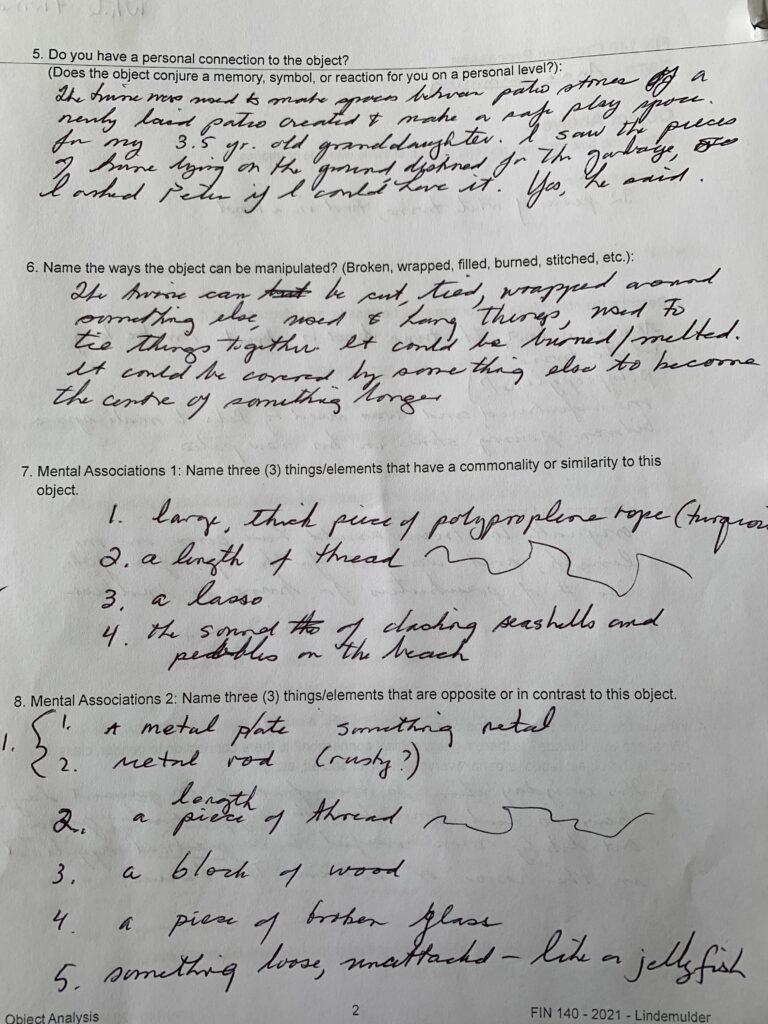 5. Do you have a personal connection to the object?
(Does the object conjure a memory, symbol, or reaction for you on a personal level?):
The twine was used to make spaces between patio stones of a
newly laid patio created to make a safe play space
for my 3.5 yr. old granddaughter. I saw the pieces
of twine lying on the ground destined for the garbage,
I asked Peter if I could have it. Yes, he said.
6. Name the ways the object can be manipulated? (Broken, wrapped, filled, burned, stitched, etc.):
The twine can be cut, tied, wrapped around
something else, used to hang things, used to
tie things together. It could be burned/melted.
it could be covered by something else to become
the centre of something longer
7. Mental Associations 1: Name three (3) things/elements that have a commonality or similarity to this
object.
1. large, thick piece of polyproplene rope (turquois
2. a length of thread
3. a lasso
4. the sound of clacking seashells and
pebbles on the beach
8. Mental Associations 2: Name three (3) things/elements that are opposite or in contrast to this object.
1. 1. A metal plate something metal
2. metal rod (rusty?)
length
2. a piece of thread
3. a block of wood
4 a piece of broken glass
5. something loose, unattached – like a jellyfish
Object Analysis
2
FIN 140 - 2021 - Lindemulder